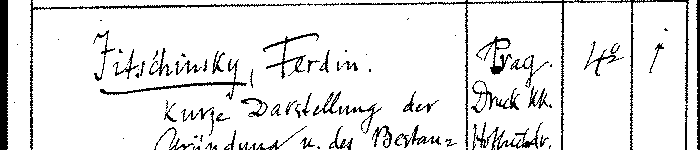 Fitschinsky, Ferdin. Prag. 4º 1
Kurze Darstellung der Druck kk.
Gründung u. des Bestan=